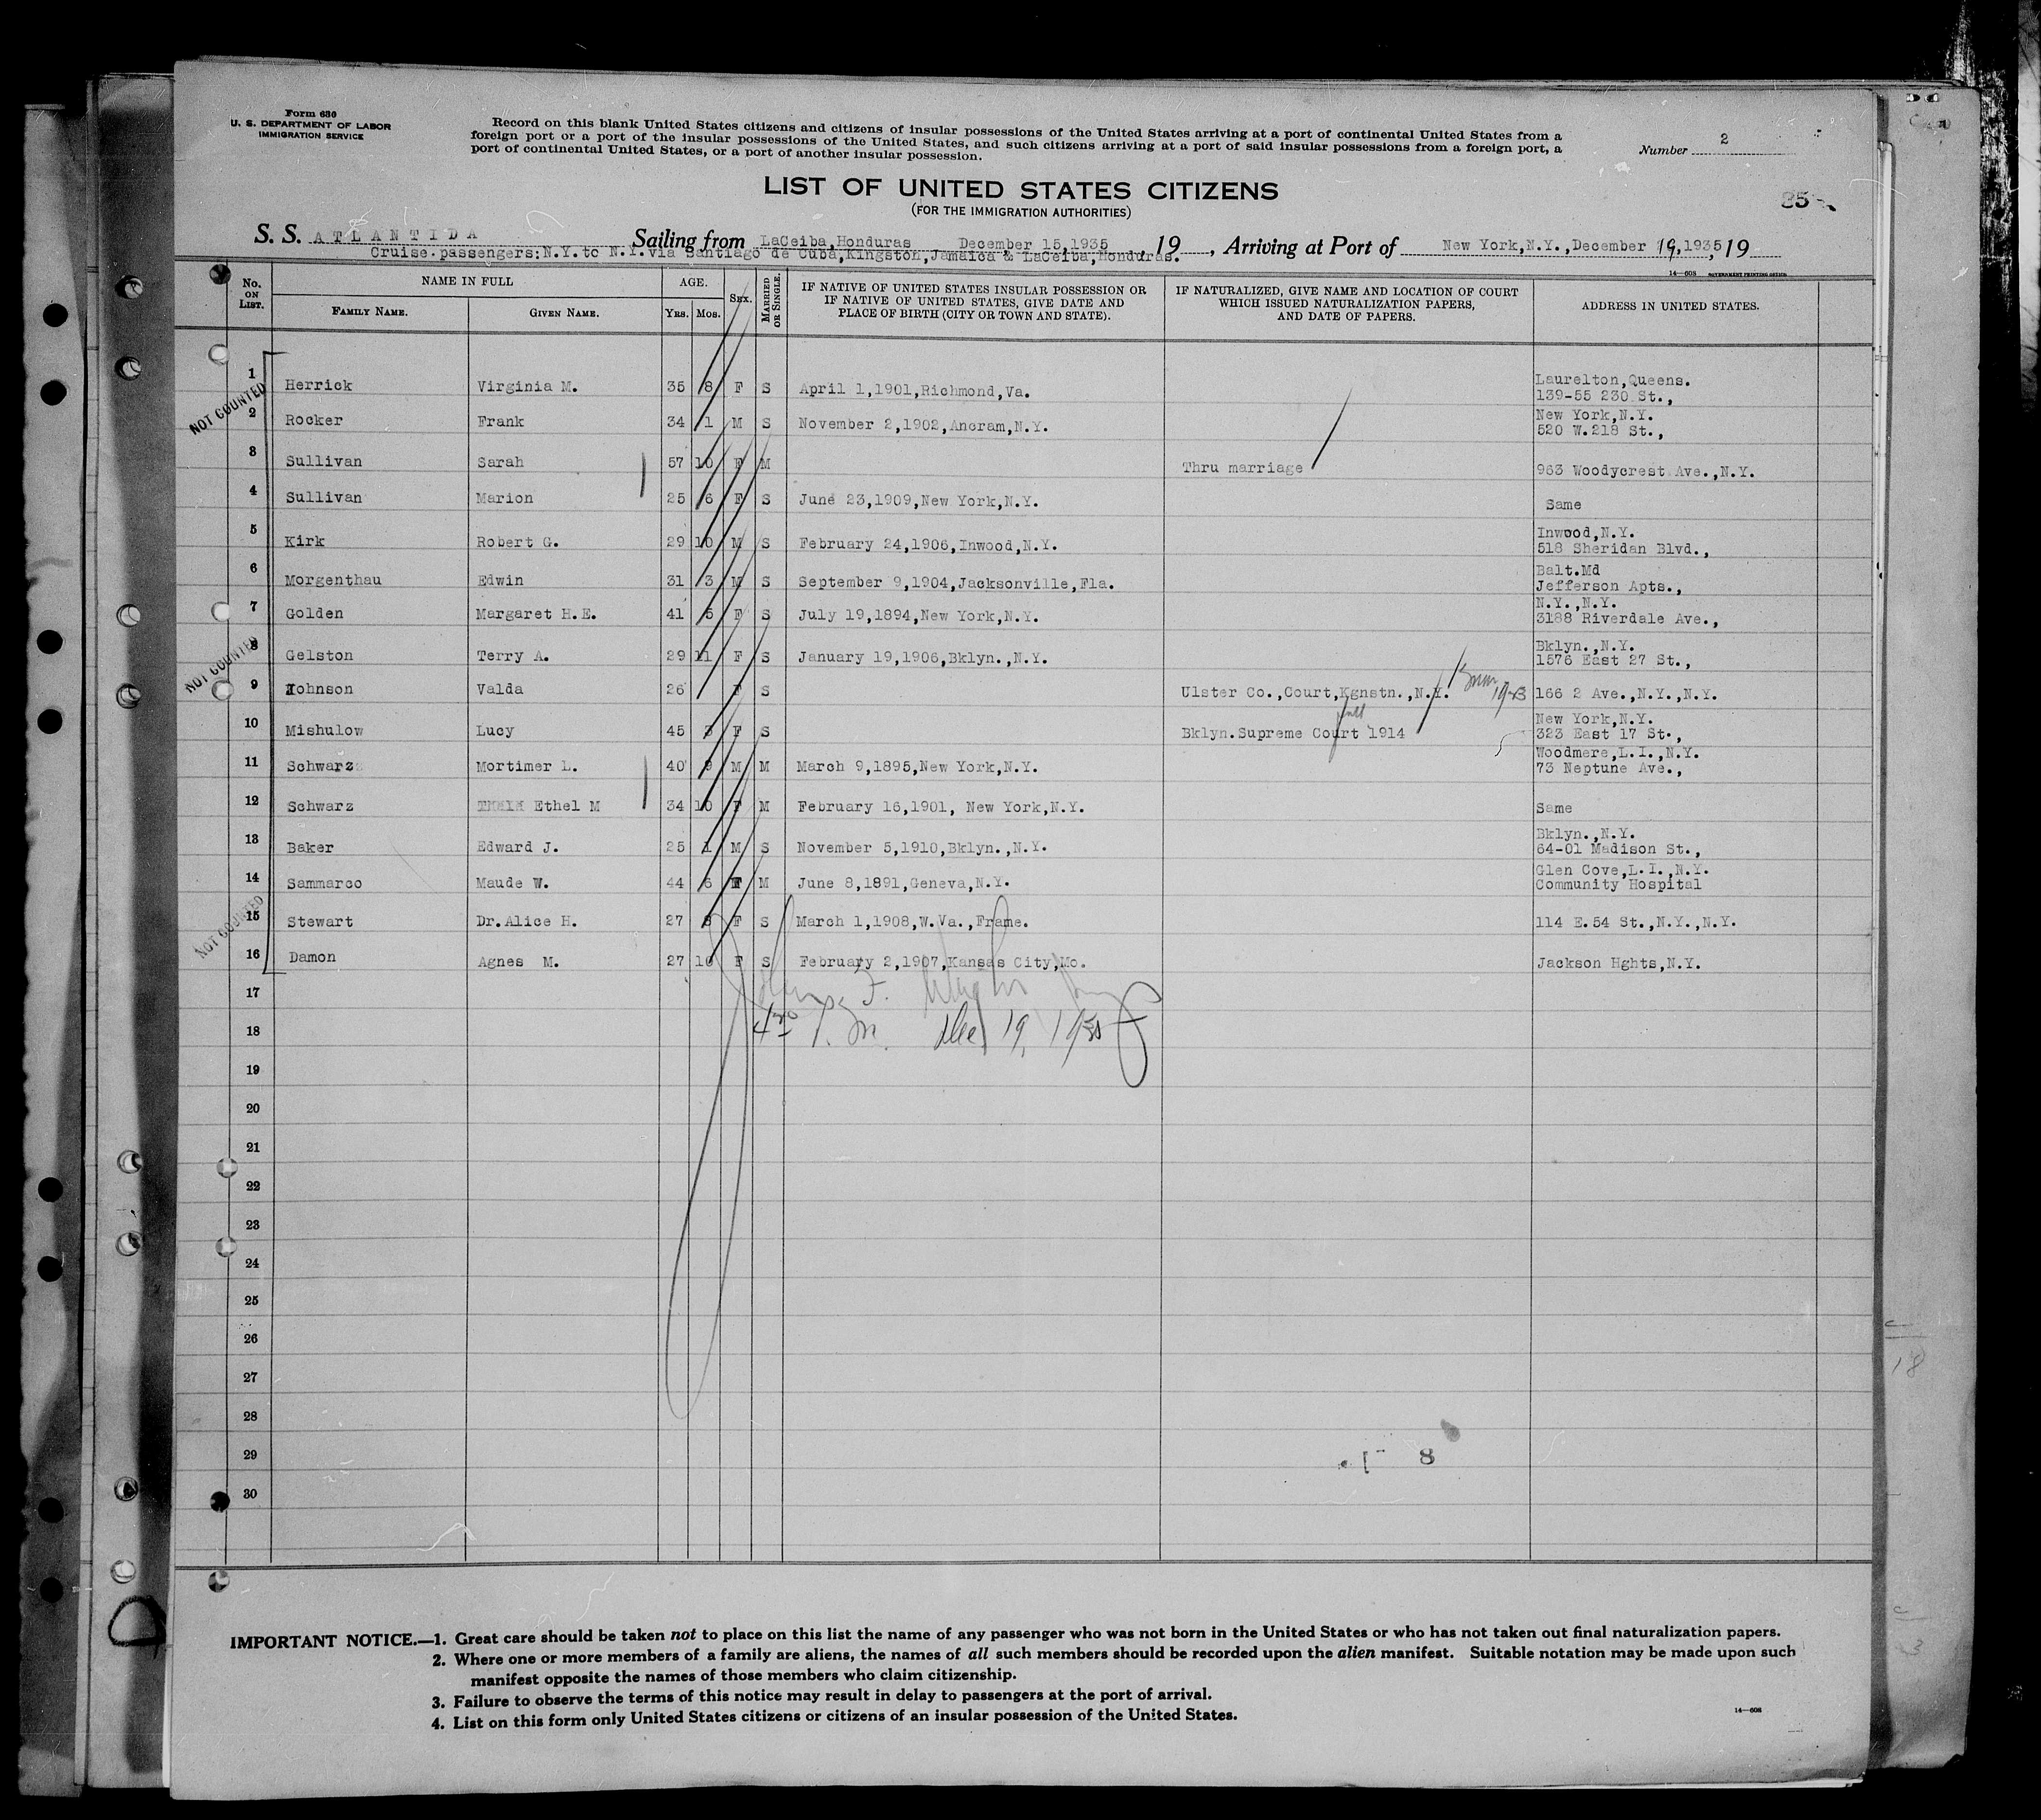 Form 630
U. S. DEPARTMENT OF LABOR
IMMIGRATION SERVICE
Record on this blank United States citizens and citizens of insular possessions of the United States arriving at a port of continental United States from a
foreign port or a port of the insular possessions of the United States, and such citizens arriving at a port of said insular possessions from a foreign port, a
port of continental United States, or a port of another insular possession.
Number 2
LIST OF UNITED STATES CITIZENS
(FOR THE IMMIGRATION AUTHORITIES)
85
S. S. ATLANTIDA Sailing from LaCeiba,Honduras December 15,1935, 19 , Arriving at Port of New York,N.Y.,December 19,1935, 19
Cruise passengers:N.Y.to N.Y.via Santiago de Cuba,Kingston,Jamaica & LaCeiba,Honduras.
14—608 GOVERNMENT PRINTING OFFICE
No. ON LIST. NAME IN FULL FAMILY NAME. GIVEN NAME. AGE. YRS. MOS. SEX. MARRIED OR SINGLE. IF NATIVE OF UNITED STATES INSULAR POSSESSION OR IF NATIVE OF UNITED STATES, GIVE DATE AND PLACE OF BIRTH (CITY OR TOWN AND STATE). IF NATURALIZED, GIVE NAME AND LOCATION OF COURT WHICH ISSUED NATURALIZATION PAPERS, AND DATE OF PAPERS. ADDRESS IN UNITED STATES.
NOT COUNTED
1 Herrick Virginia M. 35 8 F S April 1,1901,Richmond,Va. Laurelton,Queens. 139-55 230 St.,
2 Rocker Frank 34 1 M S November 2,1902,Ancram,N.Y. New York,N.Y. 520 W.218 St.,
3 Sullivan Sarah 57 10 F M Thru marriage 963 Woodycrest Ave.,N.Y.
4 Sullivan Marion 25 6 F S June 23,1909,New York,N.Y. Same
5 Kirk Robert G. 29 10 M S February 24,1906,Inwood,N.Y. Inwood,N.Y. 518 Sheridan Blvd.,
6 Morgenthau Edwin 31 3 M S September 9,1904,Jacksonville,Fla. Balt.Md Jefferson Apts.,
7 Golden Margaret H.E. 41 5 F S July 19,1894,New York,N.Y. N.Y.,N.Y. 3188 Riverdale Ave.,
NOT COUNTED
8 Gelston Terry A. 29 11 F S January 19,1906,Bklyn.,N.Y. Bklyn.,N.Y. 1576 East 27 St.,
9 Johnson Valda 26 F S Ulster Co.,Court,Kgnstn.,N.Y. 166 2 Ave.,N.Y.,N.Y.
10 Mishulow Lucy 45 3 F S Bklyn.Supreme Court 1914 New York,N.Y. 323 East 17 St.,
11 Schwarz Mortimer L. 40 9 M M March 9,1895,New York,N.Y. Woodmere,L.I.,N.Y. 73 Neptune Ave.,
12 Schwarz Ethel M 34 10 F M February 16,1901, New York,N.Y. Same
13 Baker Edward J. 25 1 M S November 5,1910,Bklyn.,N.Y. Bklyn.,N.Y. 64-01 Madison St.,
14 Sammarco Maude W. 44 6 F M June 8,1891,Geneva,N.Y. Glen Cove,L.I.,N.Y. Community Hospital
NOT COUNTED
15 Stewart Dr.Alice H. 27 8 F S March 1,1908,W.Va.,Frame. 114 E.54 St.,N.Y.,N.Y.
16 Damon Agnes M. 27 10 F S February 2,1907,Kansas City,Mo. Jackson Hghts,N.Y.
17
18 Dec 19, 1935
19
20
21
22
23
24
25
26
27
28
29
30
8
18
IMPORTANT NOTICE.—1. Great care should be taken not to place on this list the name of any passenger who was not born in the United States or who has not taken out final naturalization papers.
2. Where one or more members of a family are aliens, the names of all such members should be recorded upon the alien manifest. Suitable notation may be made upon such
manifest opposite the names of those members who claim citizenship.
3. Failure to observe the terms of this notice may result in delay to passengers at the port of arrival.
4. List on this form only United States citizens or citizens of an insular possession of the United States.
14—608